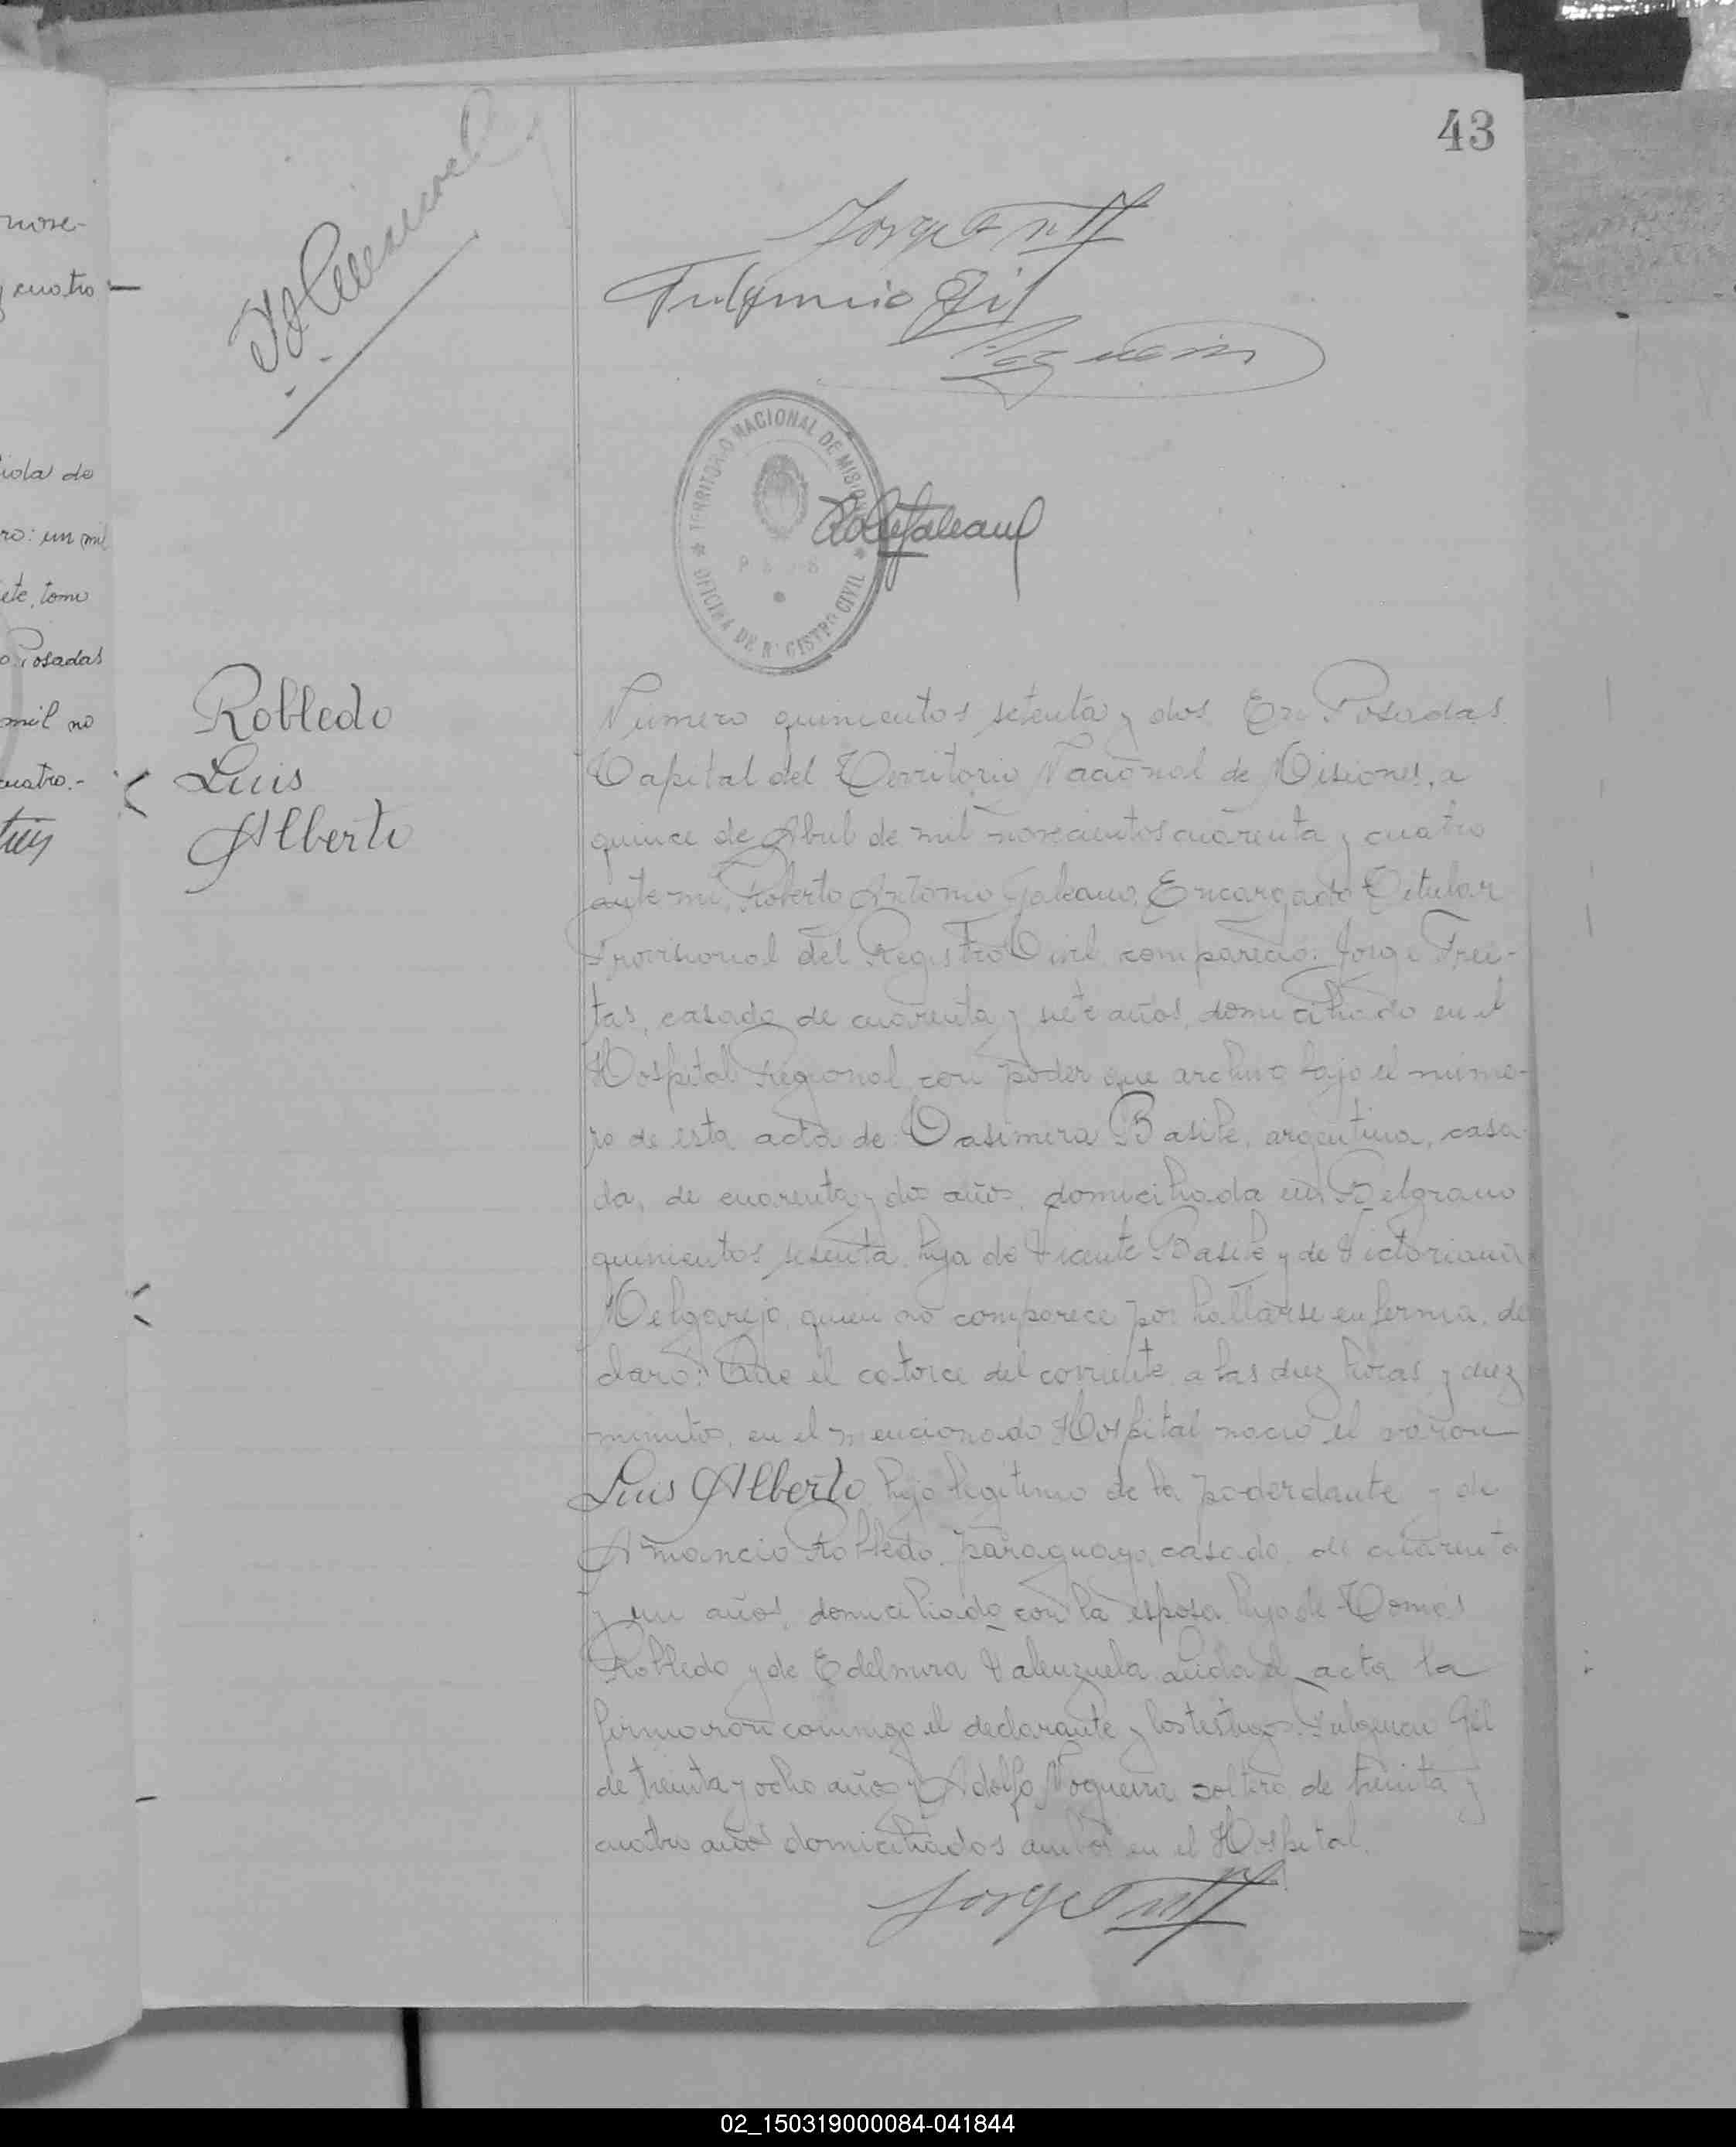 43
nove-
y cuatro
Jorge
Fulgencio Gil
Nogueira
TERRITORIO NACIONAL DE MISIONES
OFICINA DE REGISTRO CIVIL
RAGaleano
iola de
ro: un mil
iete, tomo
o Posadas
mil no
cuatro.-
Robledo
Luis
Alberto
Número quinientos setenta y dos. En Posadas
Capital del Territorio Nacional de Misiones, a
quince de Abril de mil novecientos cuarenta y cuatro
ante mi, Roberto Antonio Galeano, Encargado Titular
Provisional del Registro Civil, compareció: Jorge Frei-
tas, casado, de cuarenta y siete años, domiciliado en el
Hospital Regional, con poder que archivo bajo el núme-
ro de esta acta de: Casimera Basile, argentina, casa-
da, de cuarenta y dos años, domiciliada en Belgrano
quinientos sesenta, hija de Vicente Basile y de Victoriana
Melgarejo, quien no comparece por hallarse enferma, de
claró: Que el catorce del corriente, a las diez horas y diez
minutos, en el mencionado Hospital nació el varon
Luis Alberto, hijo legítimo de la poderdante y de
Amancio Robledo, paraguayo, casado, de cuarenta
y un años, domiciliado con la esposa, hijo de Tomas
Robledo y de Edelmira Valenzuela. Leida el acta la
firmaron conmigo el declarante y los testigos: Fulgencio Gil
de treinta y ocho años y Adolfo Nogueira, soltero de treinta y
cuatro años domiciliados ambos en el Hospital.
Jorge
02_150319000084-041844